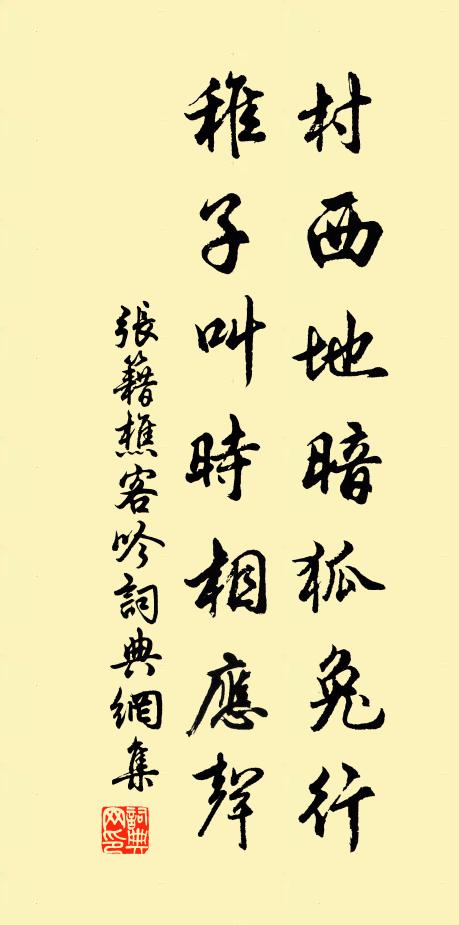 村西地暗狐兔行
稚子叫時相應聲
張籍樵客吟詞典網集
詞典网印